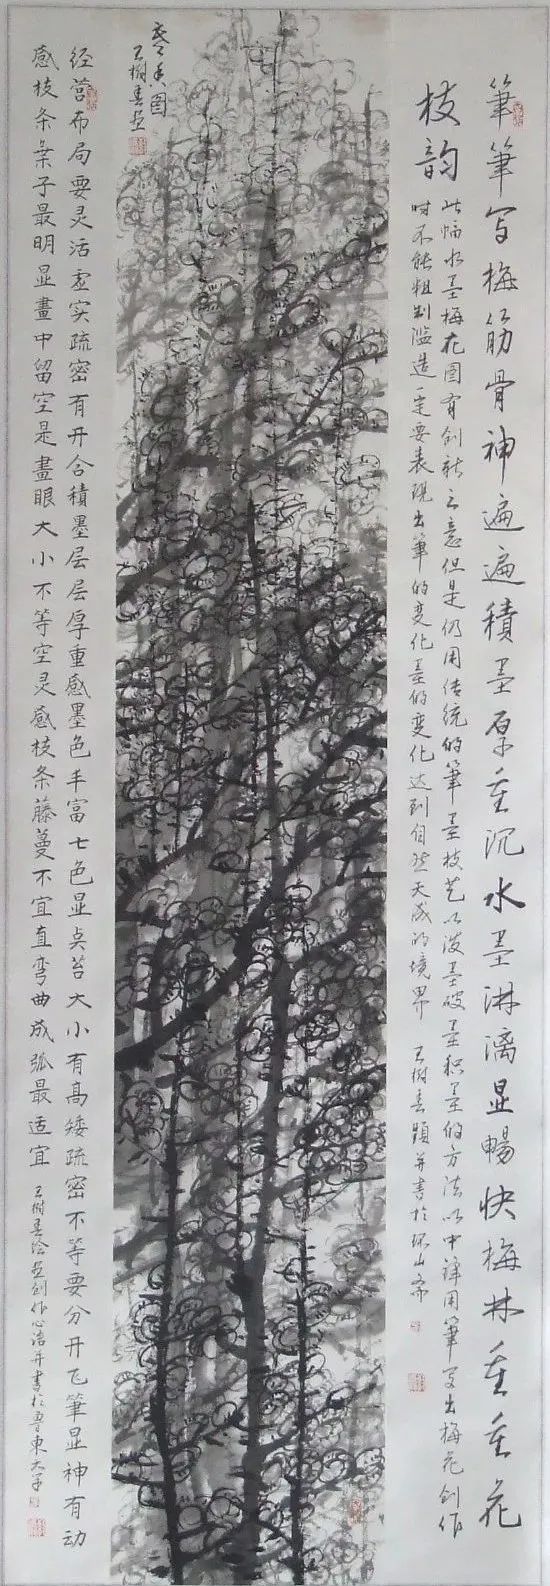 筆筆写梅筋骨神遍遍積墨厚重沉水墨淋漓显暢快梅林重重花
枝韵
此幅水墨梅花图有创新之意但是仍用传统的筆墨技艺以泼墨破墨积墨的方法以中锋用筆写出梅花创作
时不能粗制滥造一定要表现出筆的变化墨的变化达到自然天成的境界 王树春题并書於
图
王树春画
经营布局要灵活虚实疏密有开合積墨层层厚重感墨色丰富七色显点苔大小有高矮疏密不等要分开飞筆显神有动
感枝条叶子最明显畫中留空是畫眼大小不等空灵感枝条藤蔓不宜直弯曲成弧最适宜 王树春绘画创作心语并書於鲁東大学